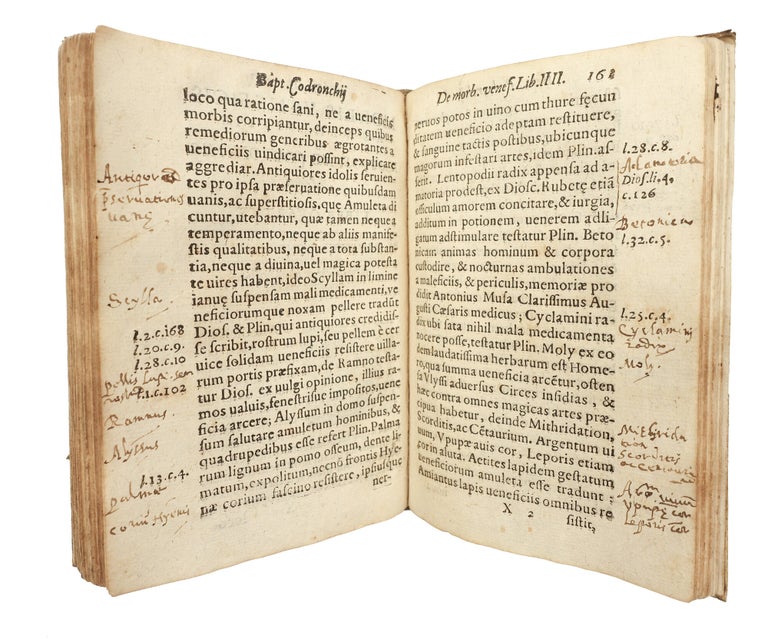 Bapt. Codronchij
loco qua ratione sani, ne a ueneficis
morbis corripiantur, deinceps quibus
remediorum generibus ægrotantes a
ueneficiis uindicari possint, explicare
aggrediar. Antiquiores idolis seruien-
tes pro ipsa præseruatione quibusdam
uanis, ac superstitiosis, quę Amuleta di
cuntur, utebantur, quæ tamen neque a
temperamento, neque ab aliis manife-
stis qualitatibus, neque a tota substan-
tia, neque a diuina, uel magica potesta
te uires habent, ideo Scyllam in limine
ianuę suspensam mali medicamenti, ve
neficiorumque noxam pellere tradũt
Dios. & Plin. qui antiquiores credidis-
se scribit, rostrum lupi, seu pellem è cer
uice solidam ueneficiis resistere uilla-
rum portis præfixam, de Ramno testa-
tur Dios. ex uulgi opinione, illius ra-
mos ualuis, fenestrisue impositos, uene
ficia arcere; Alyssum in domo suspen-
sum salutare amuletum hominibus, &
quadrupedibus esse refert Plin. Palma
rum lignum in pomo osseum, dente li-
matum, expolitum, necnõ frontis Hyę-
næ corium fascino resistere, ipsiusque
ner-
Scylla.
l.2.c.168
l.20.c.9.
l.28.c.10
l.1.c.102
Ramnus.
Alyssus
l.13.c.4.
palmæ
De morb. venef. Lib. IIII. 162
neruos potos in uino cum thure fęcun
ditatem ueneficio adeptam restituere,
& sanguine tactis postibus, ubicunque
magorum infestari artes, idem Plin. as-
serit. Lentopodii radix appensa ad a-
matoria prodest, ex Dios. Rubetę etiã
osficulum amorem concitare, & iurgia,
additum in potionem, uenerem adli-
gatum adstimulare testatur Plin. Beto
nicam animas hominum & corpora
custodire, & nocturnas ambulationes
a maleficiis, & periculis, memoriæ pro
didit Antonius Musa Clarissimus Au-
gusti Cæsaris medicus; Cyclamini ra-
dix ubi sata nihil mala medicamenta
nocere posse, testatur Plin. Moly ex co
dem laudatissima herbarum est Home-
ro, qua summa ueneficia arcẽtur, osten
sa Vlyssi aduersus Circes insidias, &
contra omnes magicas artes præ-
cipua habetur, deinde Mithridation,
Scorditis, ac Cẽtaurium. Argentum ui
uum, Vpupæ auis cor, Leporis etiam
cor in aluta. Aetites lapidem gestatum
ueneficiorum amuleta esse tradunt;
Amiantus lapis ueneficiis omnibus re
X 2
sistit,
l.28.c.8.
Dios. li.4.
c.126
Betonica
l.32.c.5.
l.25.c.4.
Cyclaminj
radix
Moly.
Mithrida
tion
vpupę cor
leporis cor